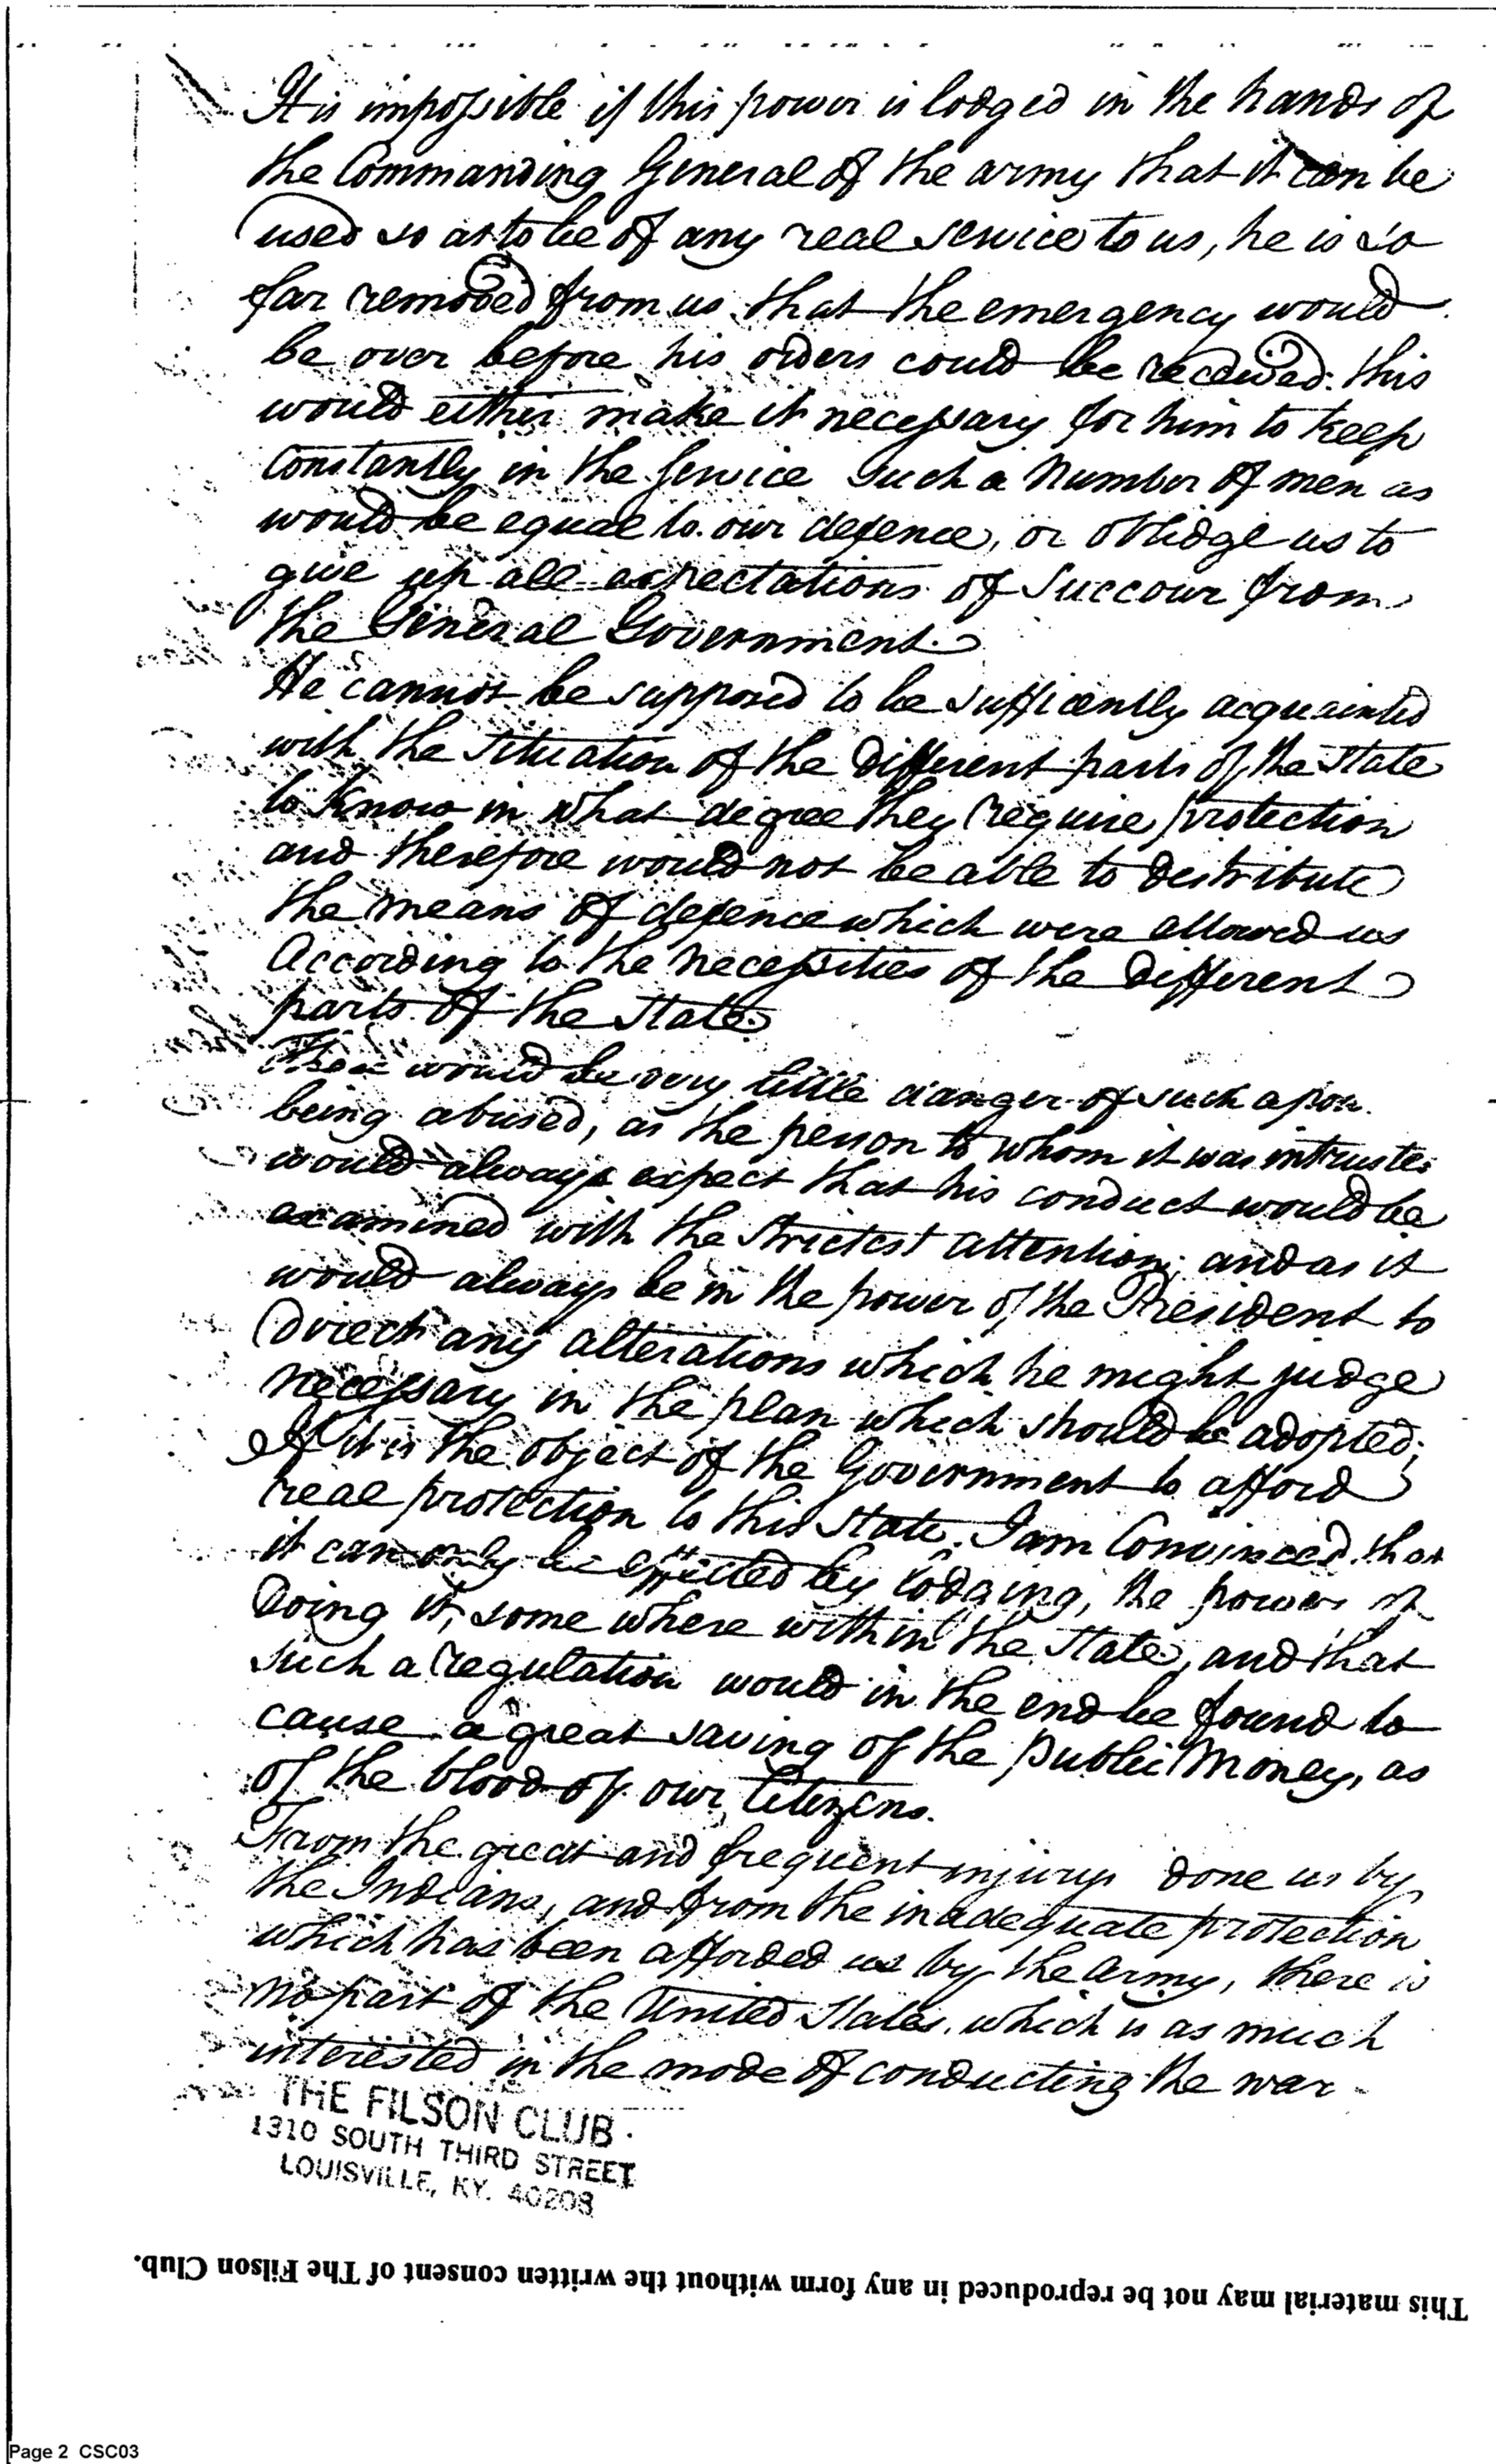 It is impossible if this power is lodged in the hands of
the Commanding General of the army that it can be
used so as to be of any real service to us, he is so
far removed from us that the emergency would
be over before his orders could be received: this
would either make it necessary for him to keep
Constantly in the Service Such a Number of men as
would be equal to our defence, or oblidge us to
give up all expectations of Succour from
the General Government.
He cannot be supposed to be sufficently acquainted
with the situation of the Different parts of the State
to know in what degree they require protection
and therefore would not be able to Destribute
the means of defence which were allowed us
According to the Necessities of the Different
parts of the State.
There would be very little danger of such a pow.
being abused, as the person to whom it was intruste
would always expect that his conduct would be
examined with the Strictest attention; and as it
would always be in the power of the President to
Direct any alterations which he might judge
Necessary in the plan which should be adopted;
If it is the object of the Government to afford
real protection to this State. I am Convinced that
it can only be effected by lodging, the power of
Doing it, some where within the State, and that
such a regulation would in the end be found to
cause a great saving of the public Money, as
of the blood of our Citizens.
From the great and frequent injurys done us by
the Indians, and from the inadequate protection
which has been afforded us by the army, there is
no part of the United States. which is as much
interested in the mode of conducting the war
THE FILSON CLUB
1310 SOUTH THIRD STREET
LOUISVILLE, KY. 40208
This material may not be reproduced in any form without the written consent of The Filson Club.
Page 2 CSC03